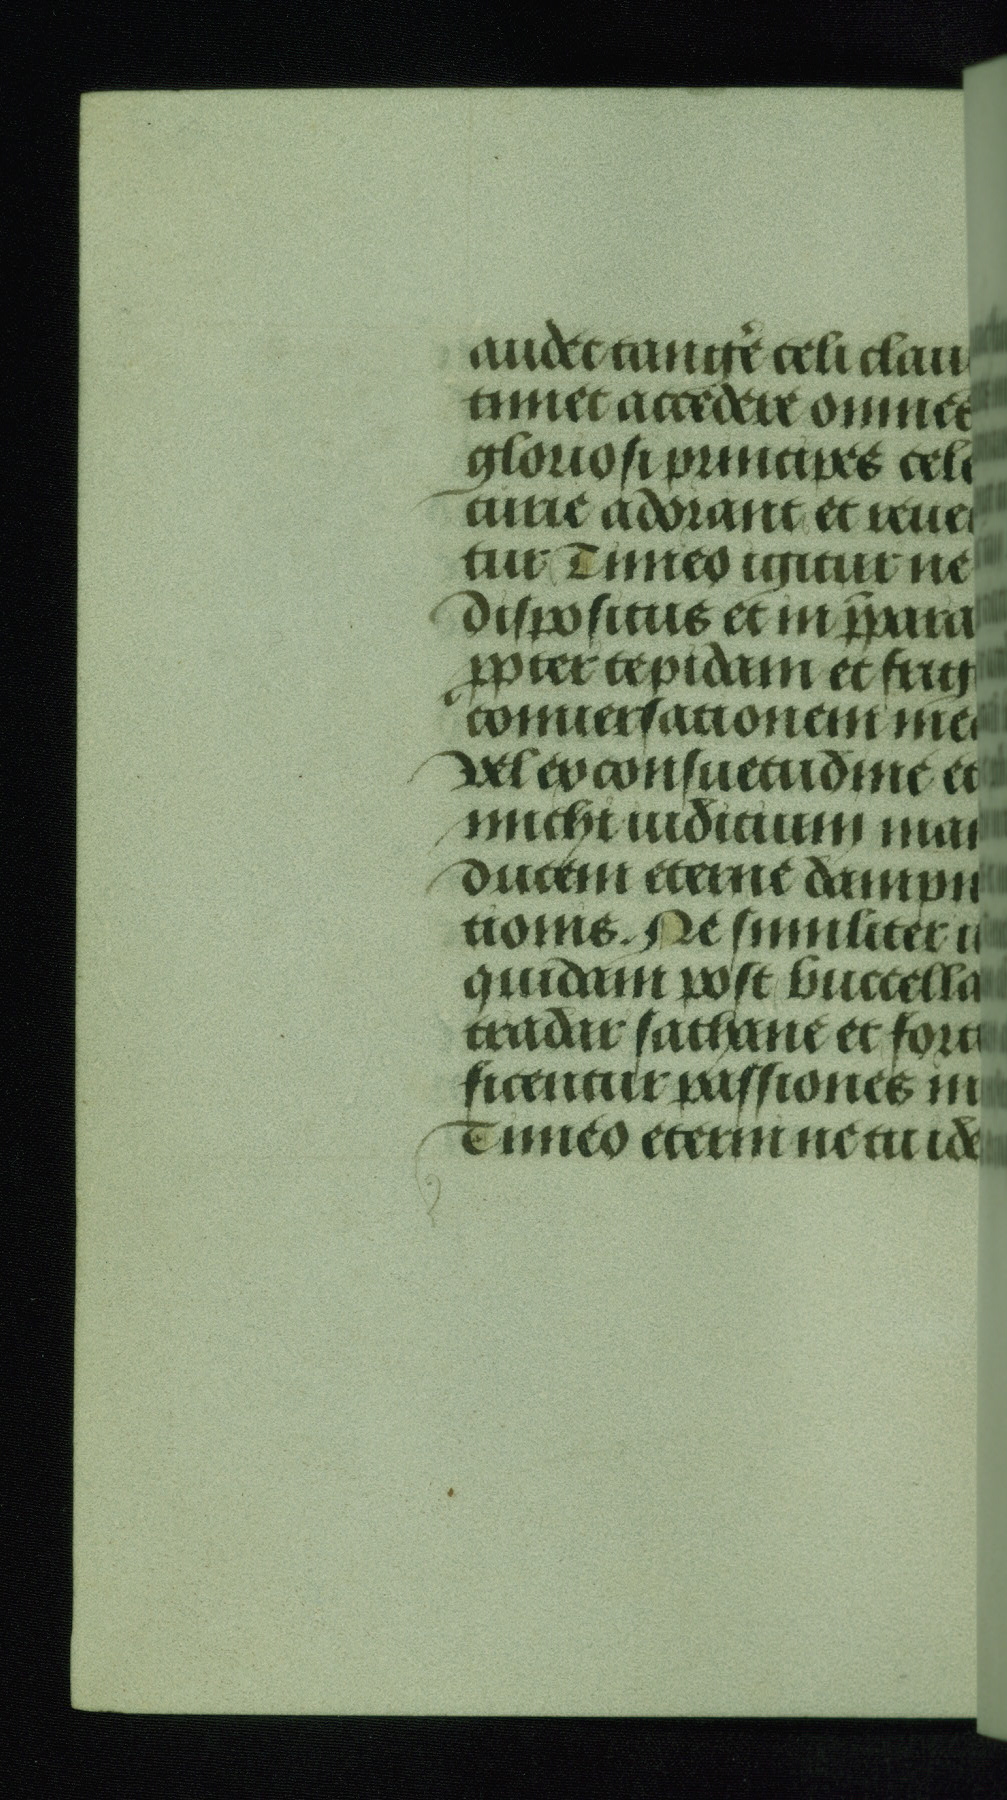 audet tangẽ celi clau
timet accedere omnes
gloriosi principes cele
curie adorant et reue
tur Timeo igitur ne
dispositus et in p̄para
ꝓpter tepidam et frig
conuersationem me
vel ex consuetudine et
michi iudicium man
ducem eterne dampn
tionis. Ne similiter
quidam post buccella
tradar sathane et forti
ficentur passiones in
Timeo eterni ne tu ide